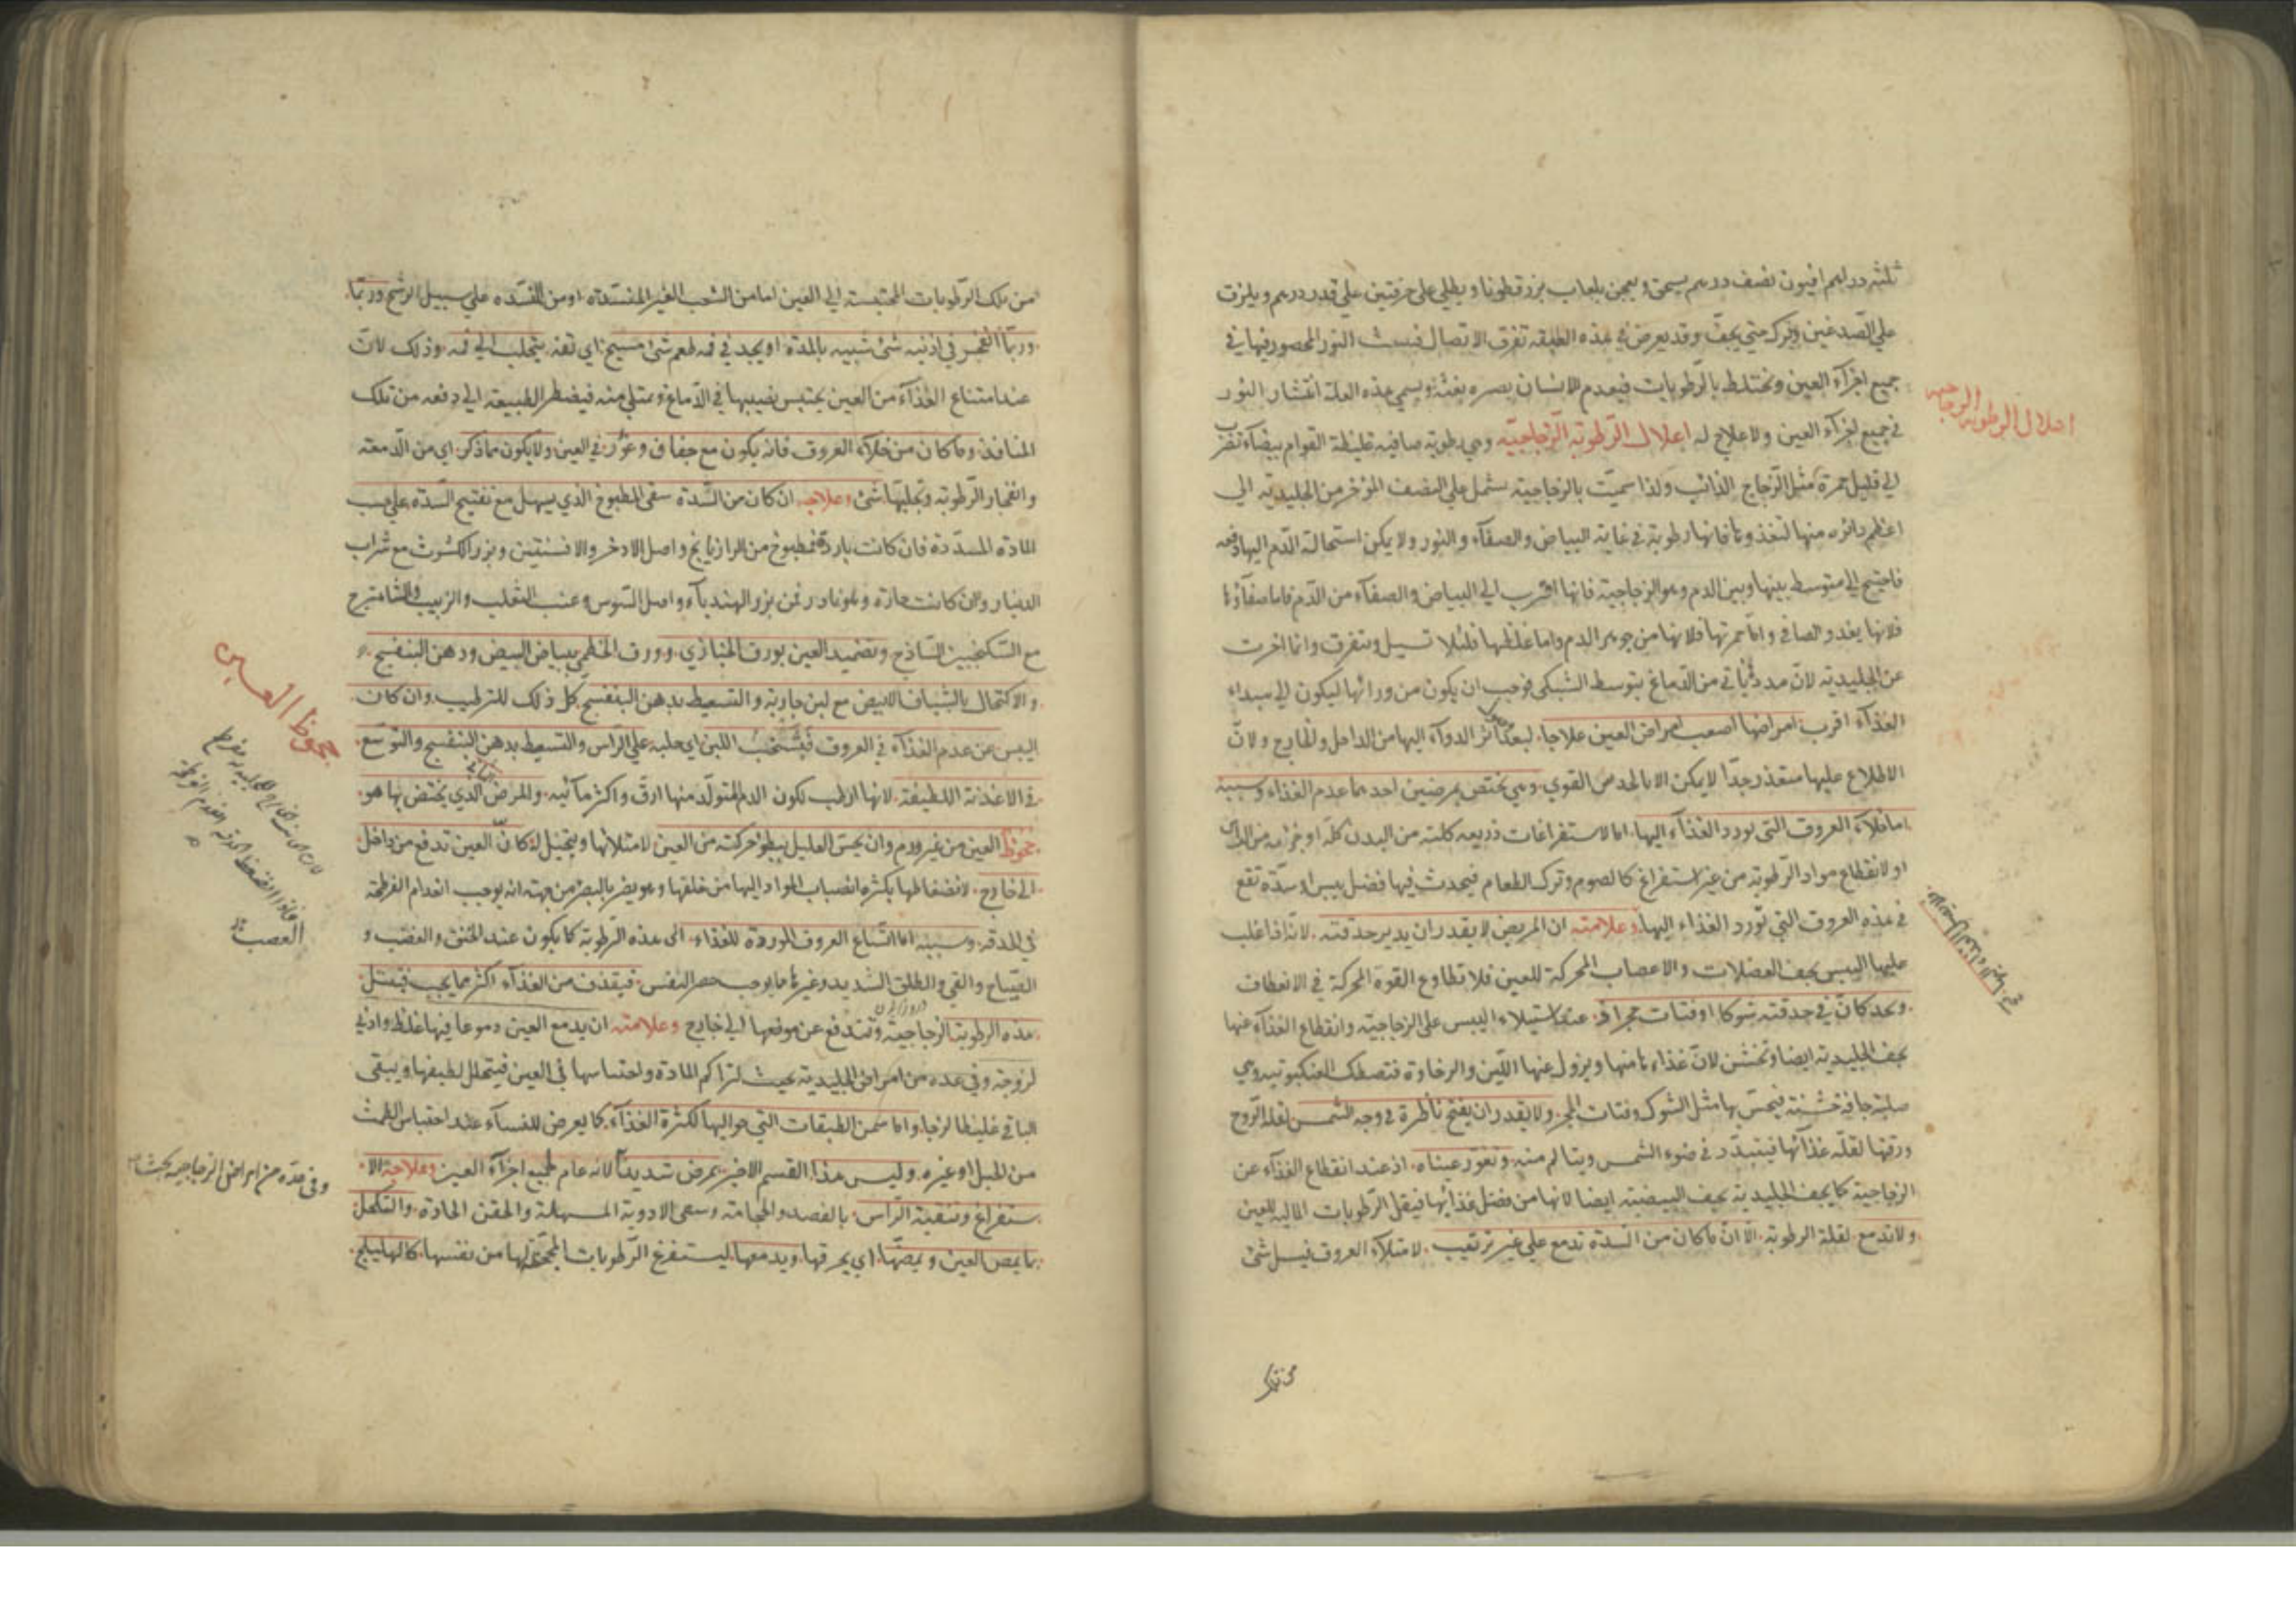 ثلثة دراهم افيون نصف درهم يسحق ويعجن بلعاب بزرقطونا ويطلى على خرقتين على قدر درهم ويلزق
على الصدغين ويترك حتى يجف وقد يعرض في هذه الطبقة تفرق الاتصال فينبث النور المحصور فيها في
جميع اجزآء العين وتختلط بالرطوبات فيعدم الانسان بصره بغتة ويسمى هذه العلة انتشار النور
في جميع اجزآء العين ولا علاج له اعلال الرطوبة الزجاجية وهي رطوبة صافية غليظة القوام بيضآء تضرب
اعلال الرطوبة الزجاجية
الى قليل حمرة مثل الزجاج الذائب ولذا سميت بالزجاجية تشمل على النصف المؤخر من الجليدية الى
اعظم دائره منها لتغذوها فانها رطوبة في غاية البياض والصفآء والنور ولا يمكن استحالة الدم اليها دفعة
فاحتيج الى متوسط بينها وبين الدم وهو الزجاجية فانها اقرب الى البياض والصفآء من الدم فاما صفآؤها
فلانها يغذو الصافي واما حمرتها فلانها من جوهر الدم واما غلظها فلئلا تسيل وتتفرق وانما اخرت
عن الجليدية لان مددها ياتي من الدماغ بتوسط الشبكي فوجب ان يكون من ورائها ليكون الى مبداء
الغذآء اقرب امراضها اصعب امراض العين علاجا لبعد تاثر الدوآء اليها من الداخل والخارج ولان
الاطلاع عليها متعذر جدا لا يمكن الا بالحدس القوي وهي يختص بمرضين احدهما عدم الغذاء وسببه
اما خلآء العروق التي تورد الغذآء اليها اما لاستفراغات ذريعه كلية من البدن كله او جزئية من الراس
او لانقطاع مواد الرطوبة من غير استفراغ كالصوم وترك الطعام فيحدث فيها فضل يبس او سدة تقع
في هذه العروق التي تورد الغذاء اليها وعلامته ان المريض لا يقدر ان يدير حدقته لانه اذا غلب
عليها اليبس يجف العضلات والاعصاب المحركة للعين فلا تطاوع القوة المحركة في الانعطاف
ويجد كان في حدقته شوكا او فتات حجر اذ عند استيلاء اليبس على الزجاجية وانقطاع الغذآء عنها
يجف الجليدية ايضا وتخشن لان غذاءها منها ويزول عنها اللين والرخاوة فتصطك العنكبوتية وهي
صلبة جافة خشنة فيحس بها مثل الشوك وفتات الحجر ولا يقدر ان يفتح ناظره في وجه الشمس لقلة الروح
ورقتها لقلة غذآئها فيتبدد في ضوء الشمس ويتالم منه وتغور عيناه اذ عند انقطاع الغذآء عن
الزجاجية كما يجف الجليدية يجف البيضية ايضا لانها من فضل غذآئها فيقل الرطوبات المالية للعين
ولا تدمع لقلة الرطوبة الا ان ما كان من السدة تدمع على غير ترتيب لامتلآء العروق فيسيل شئ
من تلك
من تلك الرطوبات المحتبسة الى العين اما من الشعب الغير المنسدة او من المنسده على سبيل الرشح وربما
وربما انفجر في اذنيه شئ شبيه بالمدة او يجد في فمه طعم شئ مسيخ اي تفه يتحلب الى فمه وذلك لان
عند امتناع الغذآء من العين يحتبس نصيبها في الدماغ ويمتلي منه فيضطر الطبيعة الى دفعه من تلك
المنافذ وما كان من خلآء العروق فانه يكون مع جفاف وغور في العين ولا يكون مما ذكر اي من الدمعة
وانفجار الرطوبة وتحلبها شئ وعلاجه ان كان من السدة سقى المطبوخ الذي يسهل مع تفتيح السدة على حسب
المادة المسددة فان كانت باردة فمطبوخ من الرازيانج واصل الاذخر والافسنتين وبزر الكشوث مع شراب
الدينار وان كانت حارة وهو نادر فمن بزر الهندبآء واصل السوس وعنب الثعلب والزبيب والشاهترج
مع السكنجبين الساذج وتضميد العين بورق الخبازي وورق الخطمي ببياض البيض ودهن البنفسج
والاكتحال بالشياف الابيض مع لبن جارية والتسعيط بدهن البنفسج كل ذلك للترطيب وان كان
اليبس من عدم الغذآء في العروق فبشخب اللبن اي حلبه على الراس والتسعيط بدهن البنفسج والتوسع
في الاغذية اللطيفة لانها ارطب لكون الدم المتولد منها ارق واكثر مآئية والمرض الثاني الذي يختص بها هو
جحوظ العين من غير ورم وان يحس العليل ببطؤ حركته من العين لامتلائها ويتخيل له كان العين تدفع من داخل
جحوظ العين
الى خارج لانضغاطها بكثرة انصباب المواد اليها من خلفها وهو يضر بالبصر من جهة انه يوجب انعدام الفرطحة
في الحدقة وسببه اما اتساع العروق الموردة للغذاء الى هذه الرطوبة كما يكون عند الخنق والغضب و
الصياح والقي والطلق الشديد وغيرها مما يوجب حصر النفس فيقذف من الغذآء اكثر مما يجب فيمتلي
هذه الرطوبة الزجاجية وتندفع عن موضعها الى خارج وعلامته ان يدمع العين دموعا فيها غلظ وادنى
لزوجة وفي عده من امراض الجليدية بحيث لتراكم المادة واحتباسها في العين فيتحلل لطيفها ويبقى
الباقي غليظا لزجا واما من الطبقات التي حواليها لكثرة الغذآء كما يعرض للنسآء عند احتباس الطمث
من الحبل او غيره وليس هذا القسم الاخير بمرض شديد لانه عام لجميع اجزآء العين وعلاجه الا
وفي عده من امراض الزجاجية بحث
ستفراغ وتنقية الراس بالفصد والحجامة وسقى الادوية المسهلة والحقن الحادة والتكحل
بما يمص العين ويمضها اي يحرقها ويدمعها ليستفرغ الرطوبات المجتمعة لها من نفسها كالهليلج